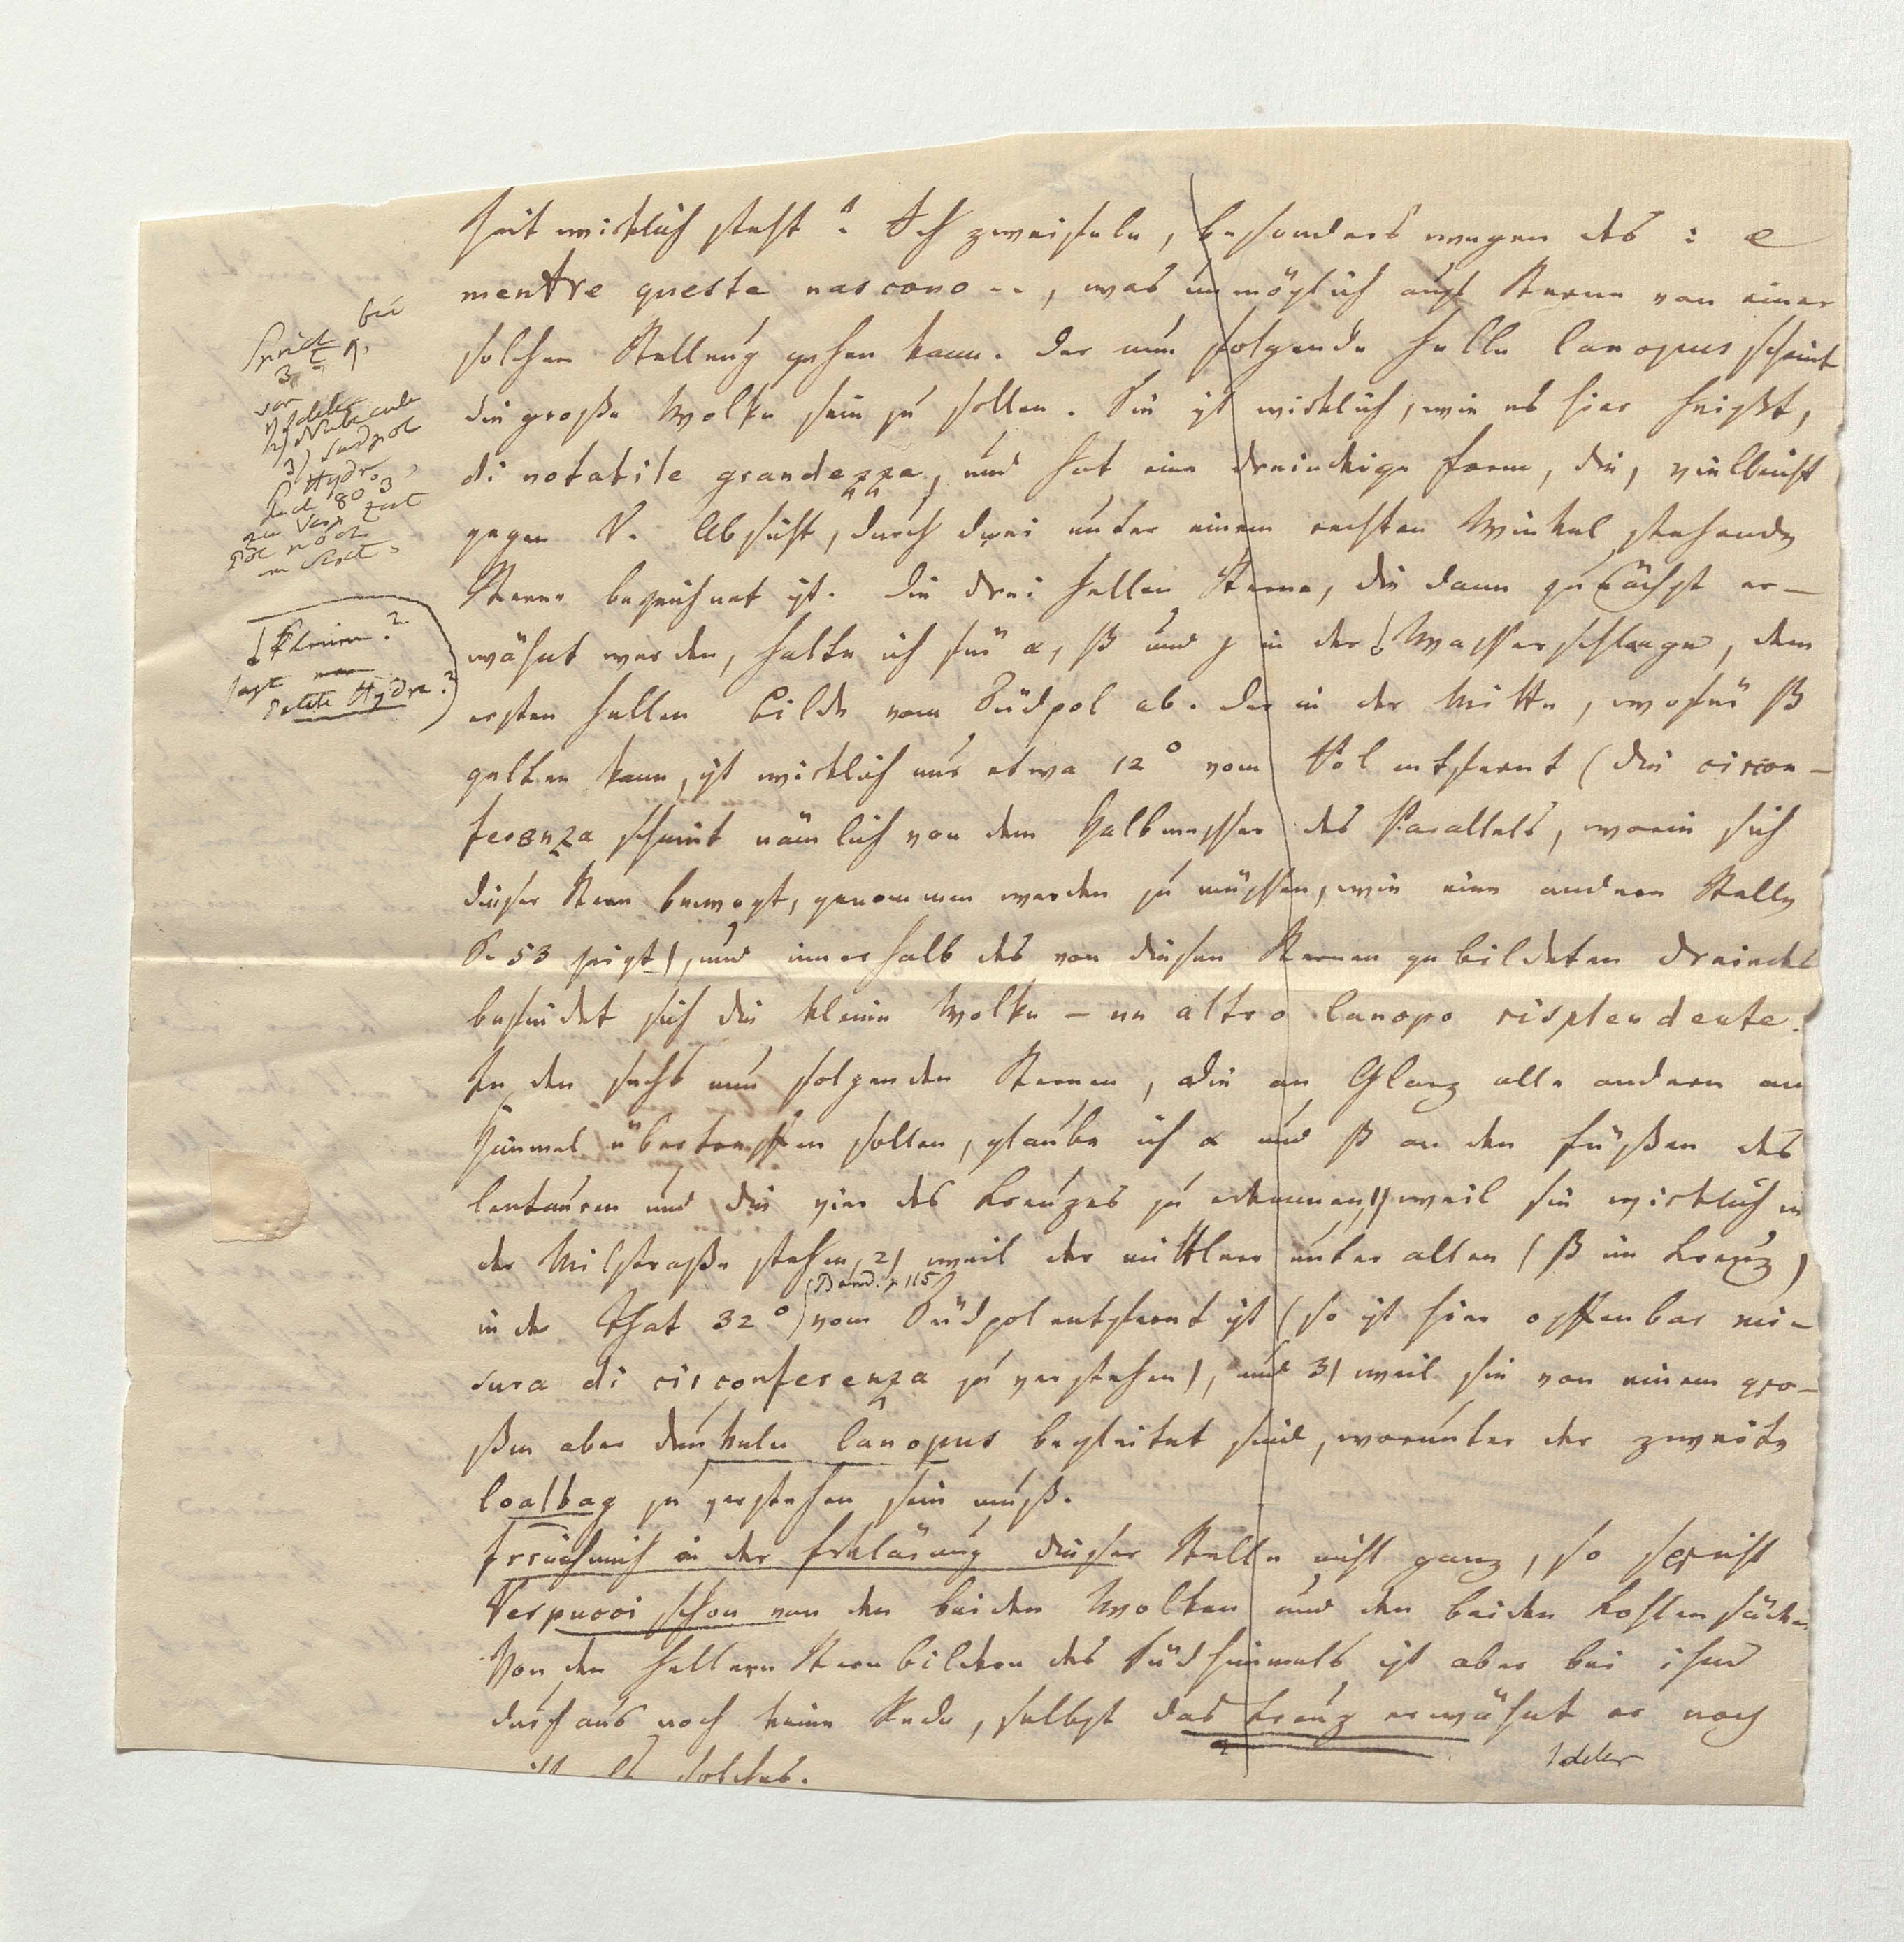 heit wirklich steht? Ich zweifele, besonders wegen des: e
mentre queste nascono.., was unmöglich auf Sterne von einer
solchen Stellung gehen kann. Der nun folgende helle Canopus scheint
die große Wolke sein zu sollen. Sie ist wirklich, wie es hier heißt,
di notabile grandezza, und hat eine dreieckige Form, die, vielleicht
gegen V. Absicht, durch drei unter einem rechten Winkel stehende
Sterne bezeichnet ist. Die drei hellen Sterne, die dann zunächst er-
wähnt werden, halte ich für α, β und γ in der Wasserschlange, dem
ersten hellen Bilde vom Südpol ab. Der in der Mitte, wofür β
gelten kann, ist wirklich nur etwa 12° vom Pol entfernt (die circon-
ferenza scheint nämlich von dem Halbmesser des Parallels, worin sich
dieser Stern bewegt, genommen werden zu müssen, wie eine andere Stelle
S. 53 zeigt), und innerhalb des von diesen Sternen gebildeten Dreiecks
befindet sich die kleine Wolke – un altro Canopo risplendente.
In den sechs nun folgenden Sternen, die an Glanz alle andern am
Himmel übertreffen sollen, glaube ich α und β an den Füßen des
Centauren und die vier des Kreuzes zu erkennen, 1) weil sie wirklich in
der Milchstraße stehen, 2) weil der mittlere unter allen (β im Kreuz)
(Band. p 115)
in der That 32° vom Südpol entfernt ist (so ist hier offenbar mi-
sura di circonferenza zu verstehen), und 3) weil sie von einem gro-
ßen aber dunkeln Canopus begleitet sind, worunter der zweite
Coalbag zu verstehen sein muß.
Irre ich mich in der Erklärung dieser Stelle nicht ganz, so spricht
Vespucci schon von den beiden Wolken und den beiden Kohlensäcken
Von den hellern Sternbildern des Südhimmels ist aber bei ihm
durchaus noch keine Rede, selbst das Kreuz erwähnt er noch
nicht als solches.
Ideler
bei
von
Ideler
2) Nubecule
3) Südpol
Hydro
80
zu Vesp
Pol noch
kleinen?
sagt man
petite Hydre?